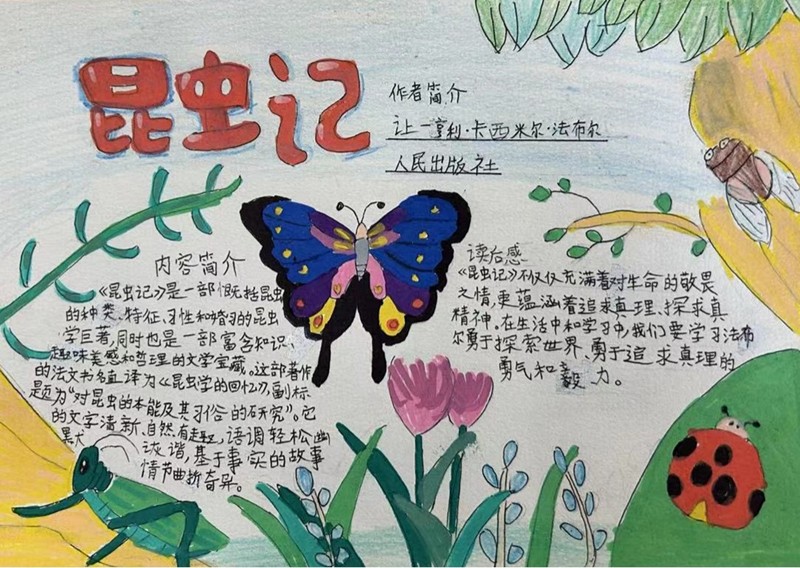 昆虫记
作者简介
让一亨利·卡西米尔·法布尔
人民出版社
内容简介
《昆虫记》是一部概括昆虫
的种类、特征、习性和婚习的昆虫
学巨著,同时也是一部富含知识、
趣味美感和哲理的文学宝藏。这部著作
的法文书名直译为《昆虫学的回忆》,副标
题为“对昆虫的本能及其习俗的研究”。它
的文字清新、自然有趣,语调轻松幽
默 诙谐,基于事实的故事
情节曲折奇异。
读后感
《昆虫记》不仅仅充满着对生命的敬畏
之情,更蕴涵着追求真理、探求真
精神。在生活中和学习中,我们要学习法布
尔勇于探索世界、勇于追求真理的
勇气和毅力。